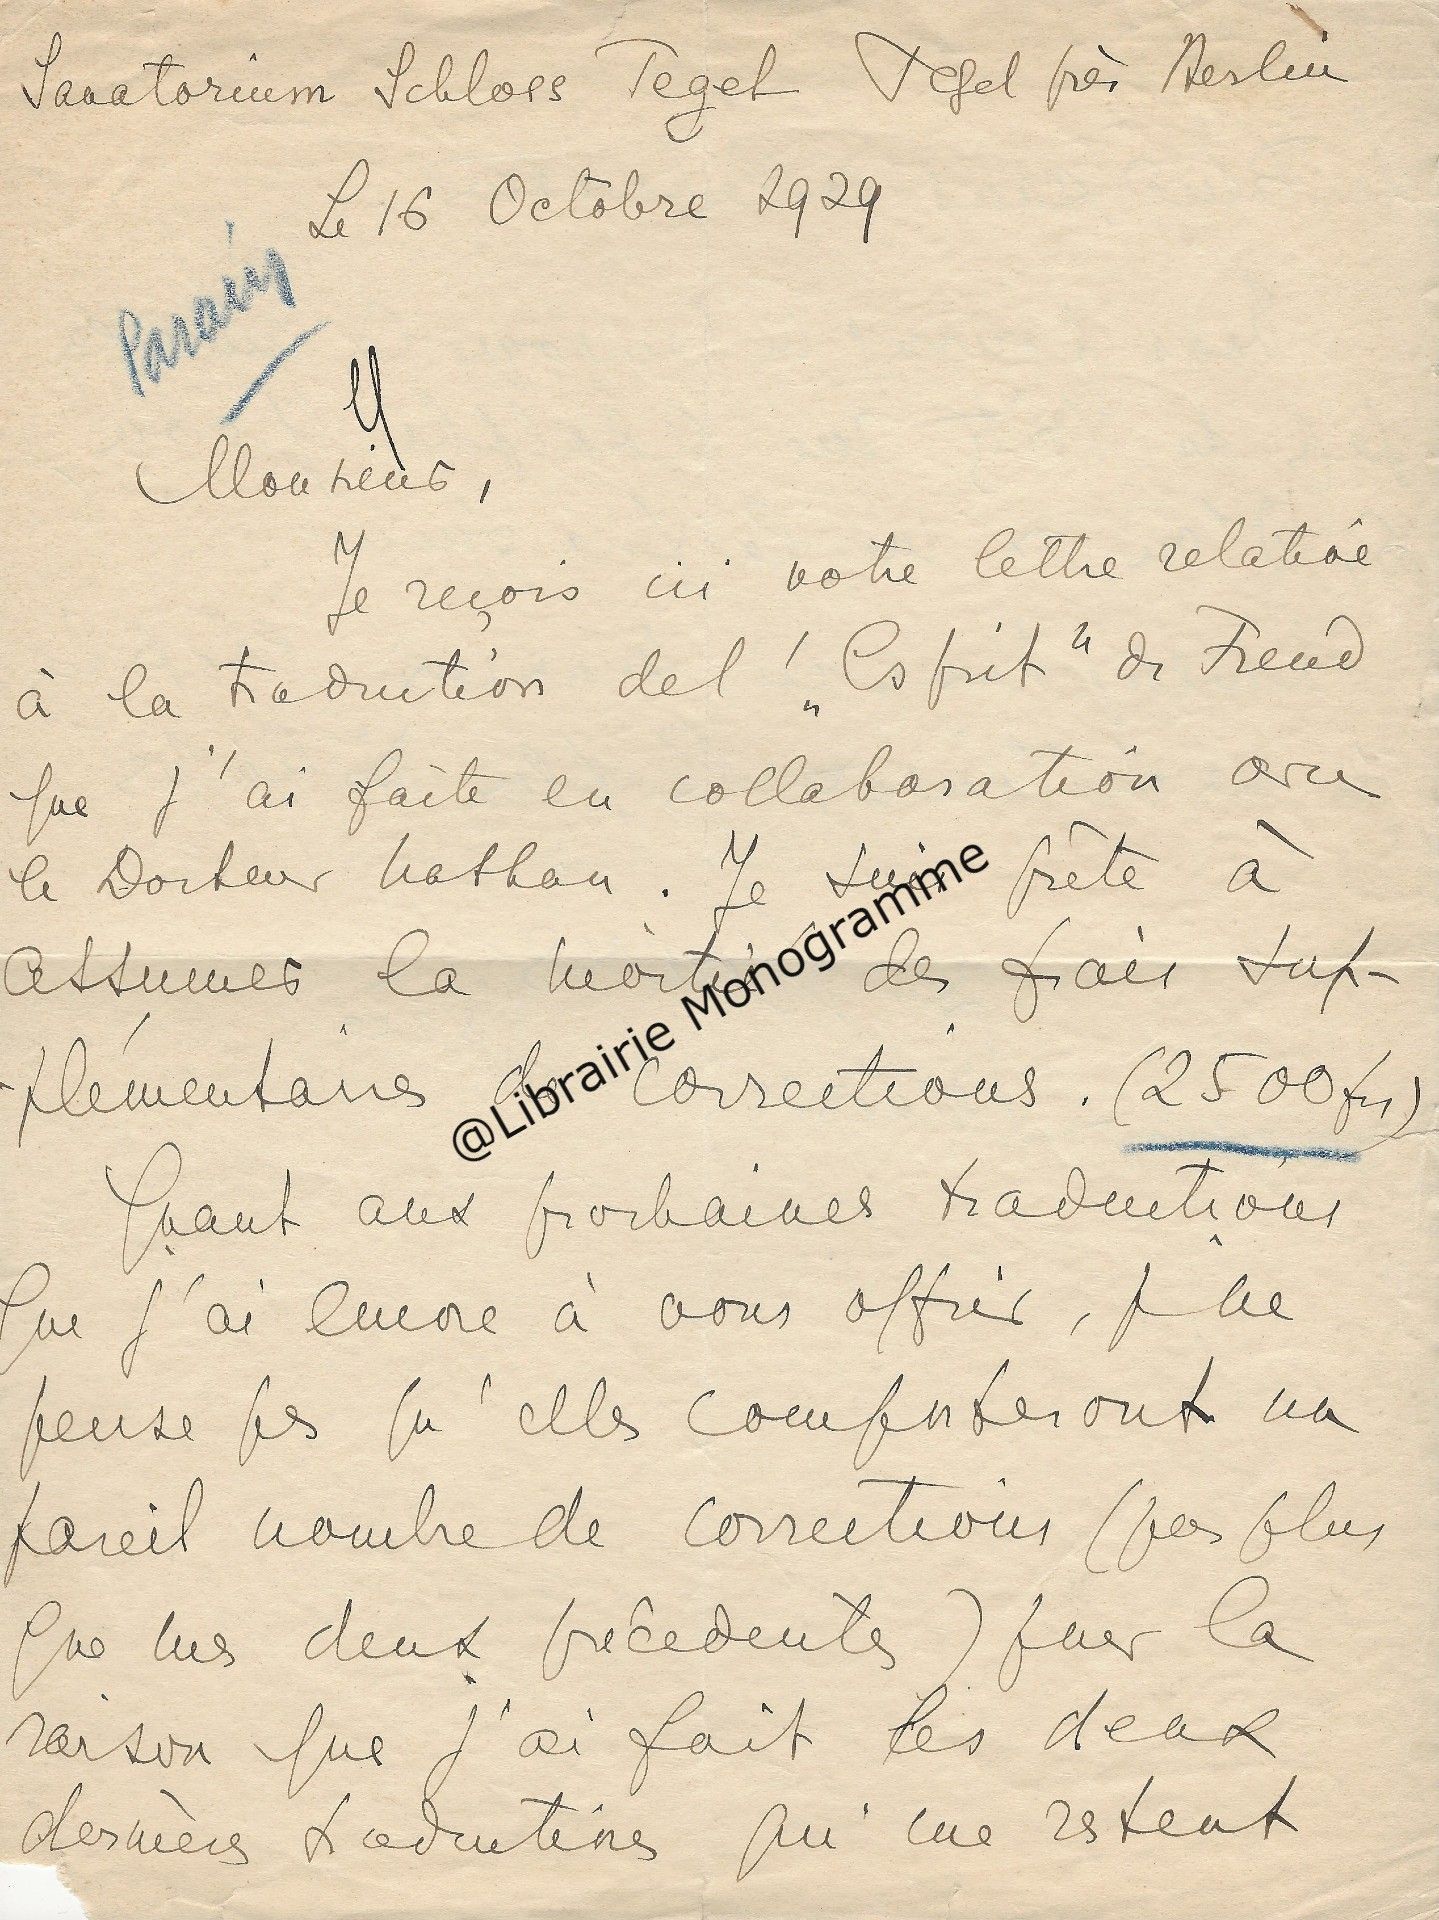 Sanatorium Schloss Tegel Tegel près Berlin
Le 16 Octobre 1929
Parain
Monsieur,
Je reçois ici votre lettre relative
à la traduction de l'„Esprit" de Freud
que j'ai faite en collaboration avec
le Docteur Nathan. Je suis prête à
assumer la moitié des frais sup-
-plémentaires de corrections. (2500 frs)
@Librairie Monogramme
Quant aux prochaines traductions
que j'ai encore à vous offrir, je ne
pense pas qu'elles comporteront un
pareil nombre de corrections (pas plus
que mes deux précédentes) pour la
raison que j'ai fait les deux
dernières traductions qui me restent